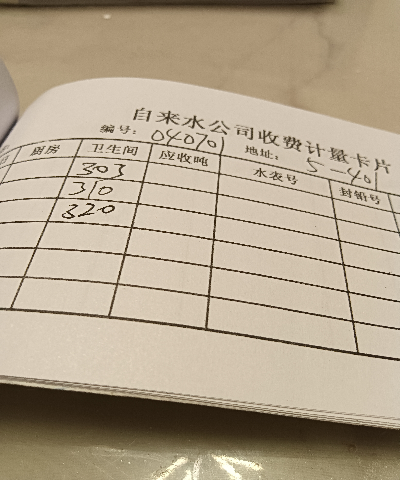 自来水公司收费计量卡片
编号: 040701 地址: 5-401
厨房 卫生间 应收吨 水表号 封铅号
303
310
320